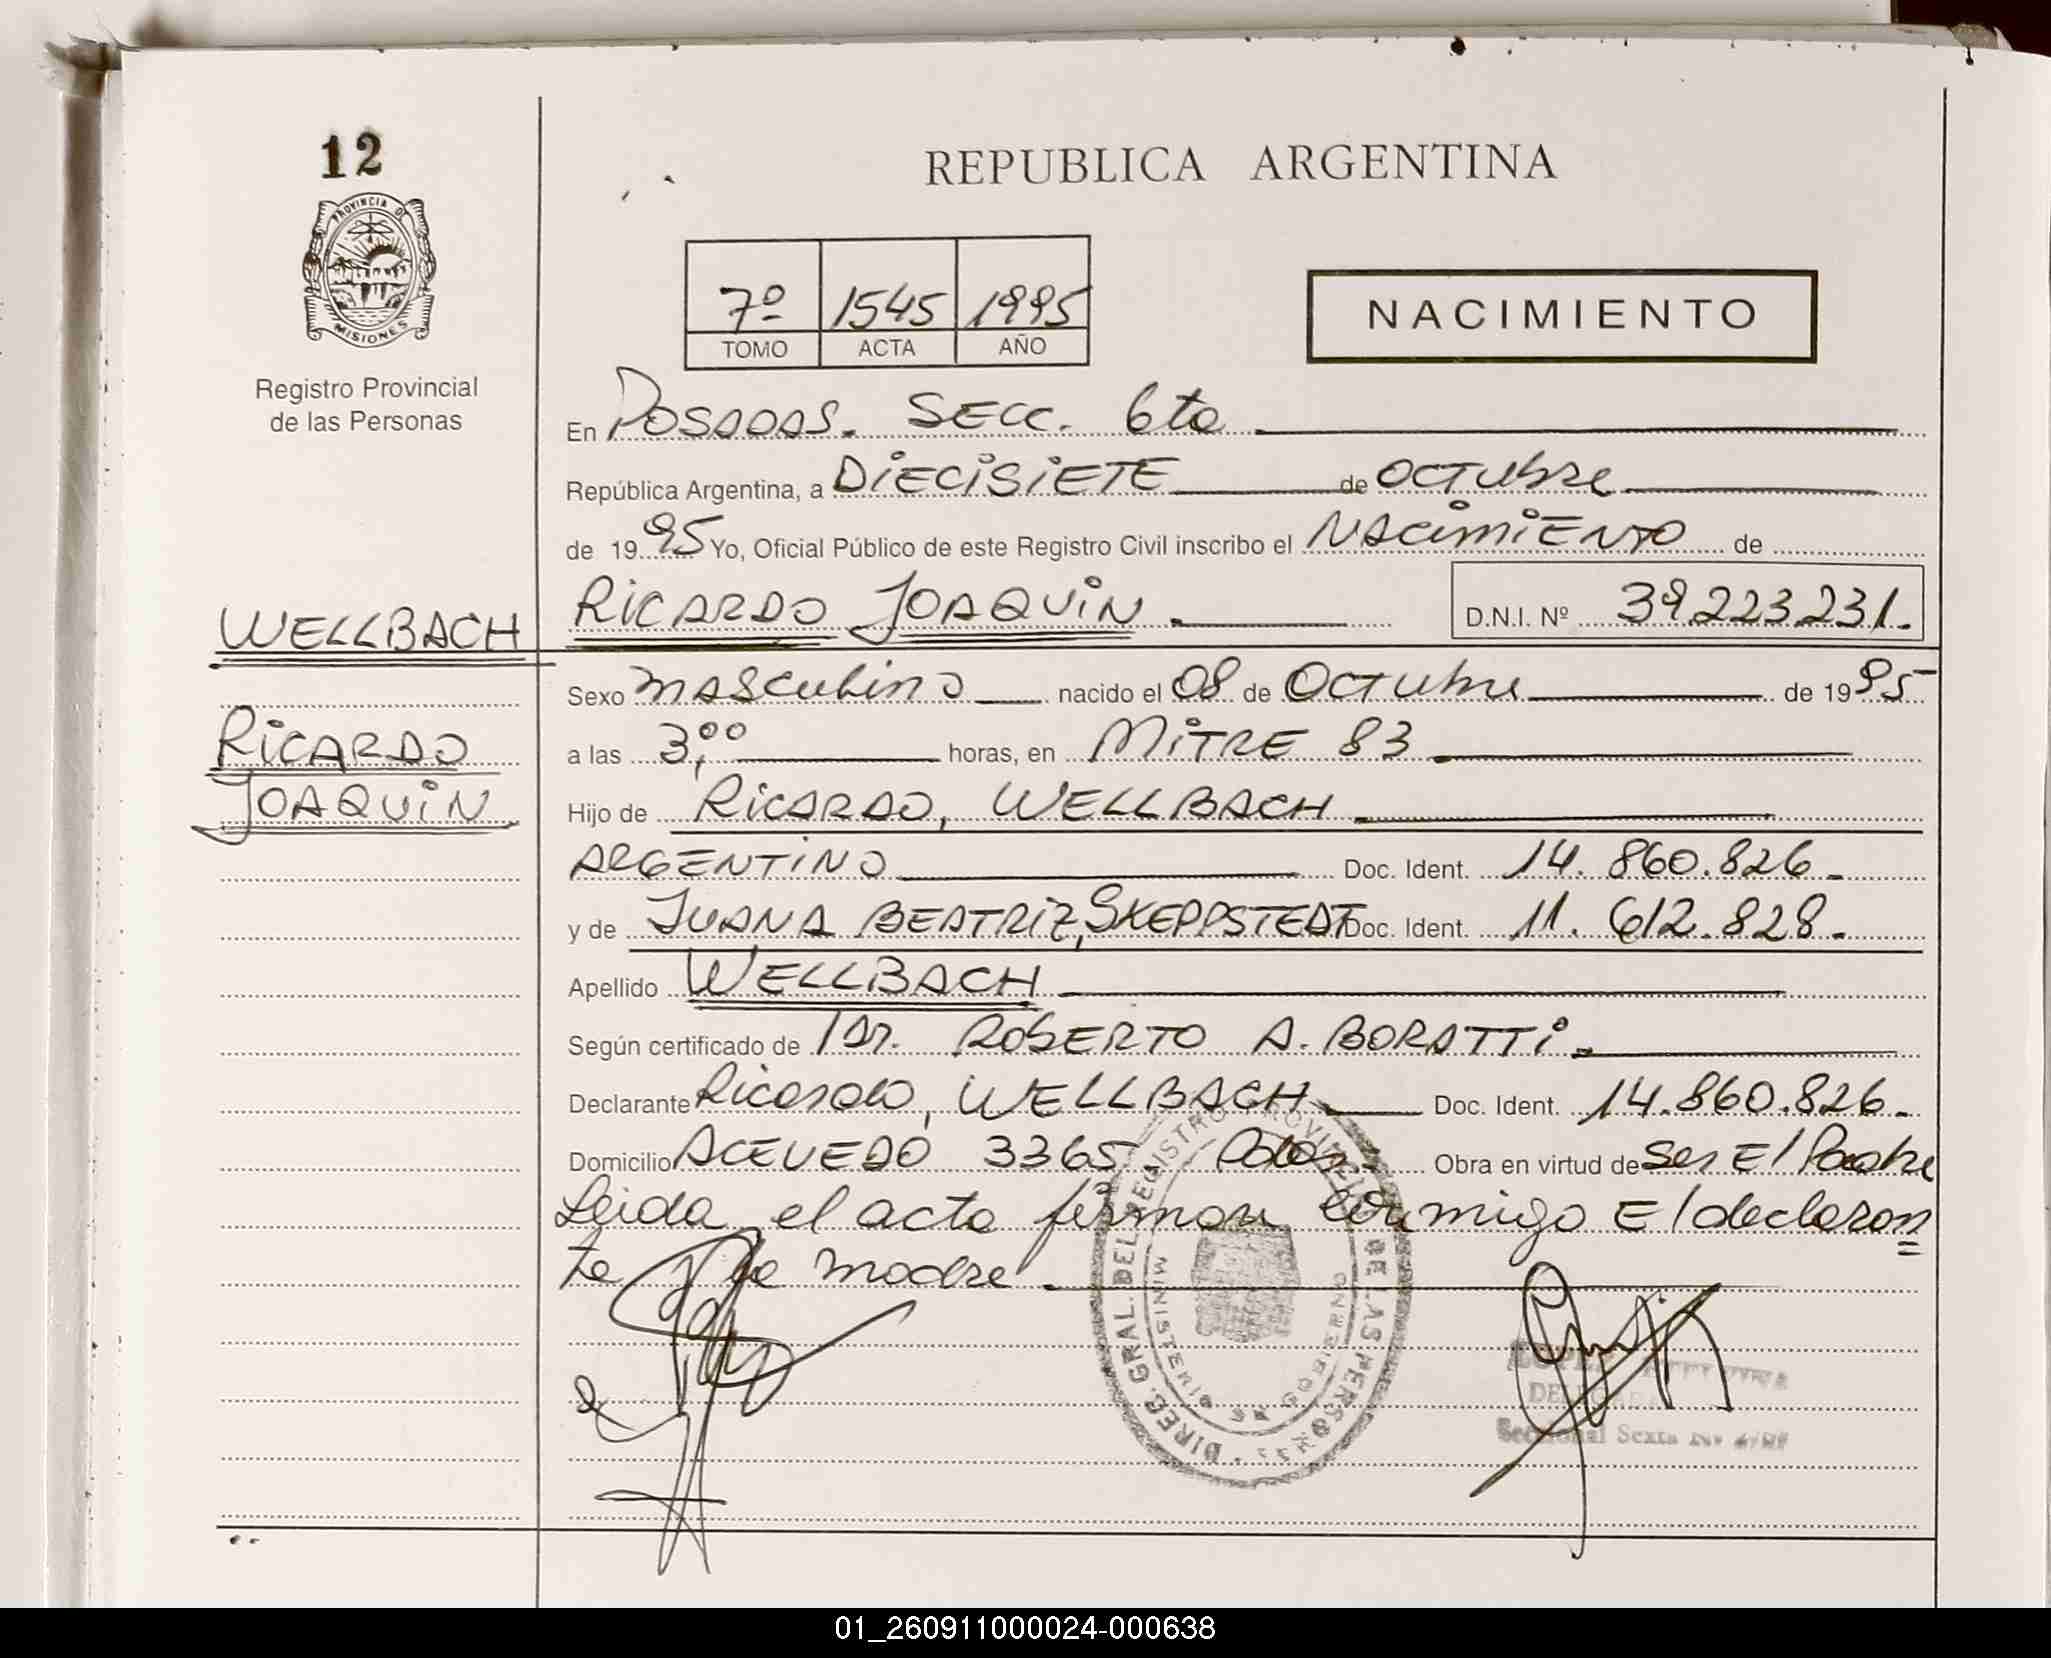 12
PROVINCIA DE
MISIONES
Registro Provincial
de las Personas
REPUBLICA ARGENTINA
7º 1545 1995
TOMO ACTA AÑO
NACIMIENTO
En POSADAS. SECC. 6ta
República Argentina, a DIECISIETE de OCTubre
de 1995 Yo, Oficial Público de este Registro Civil inscribo el NACimiENTO de
RICARDO JOAQUIN D.N.I. Nº 39.223.231.
WELLBACH
RICARDO
JOAQUIN
Sexo mASCulinO nacido el 08 de OCTubre de 1995
a las 3,00 horas, en MITRE 83
Hijo de RICARDO, WELLBACH
ARGENTINO Doc. Ident. 14.860.826.
y de JUANA BEATRIZ, SKEPPSTEDT Doc. Ident. 11.612.828.
Apellido WELLBACH
Según certificado de Dr. ROBERTO A. BORATTI.
Declarante Ricardo, WELLBACH Doc. Ident. 14.860.826.
Domicilio ACEVEDO 3365 Obra en virtud de Ser El Padre
Leida el acta firman conmigo El declaran=
te y la madre.
DIREC. GRAL. DEL REGISTRO PROVINCIAL DE LAS PERSONAS
MINISTERIO GOBIERNO
Seccional Sexta
01_260911000024-000638